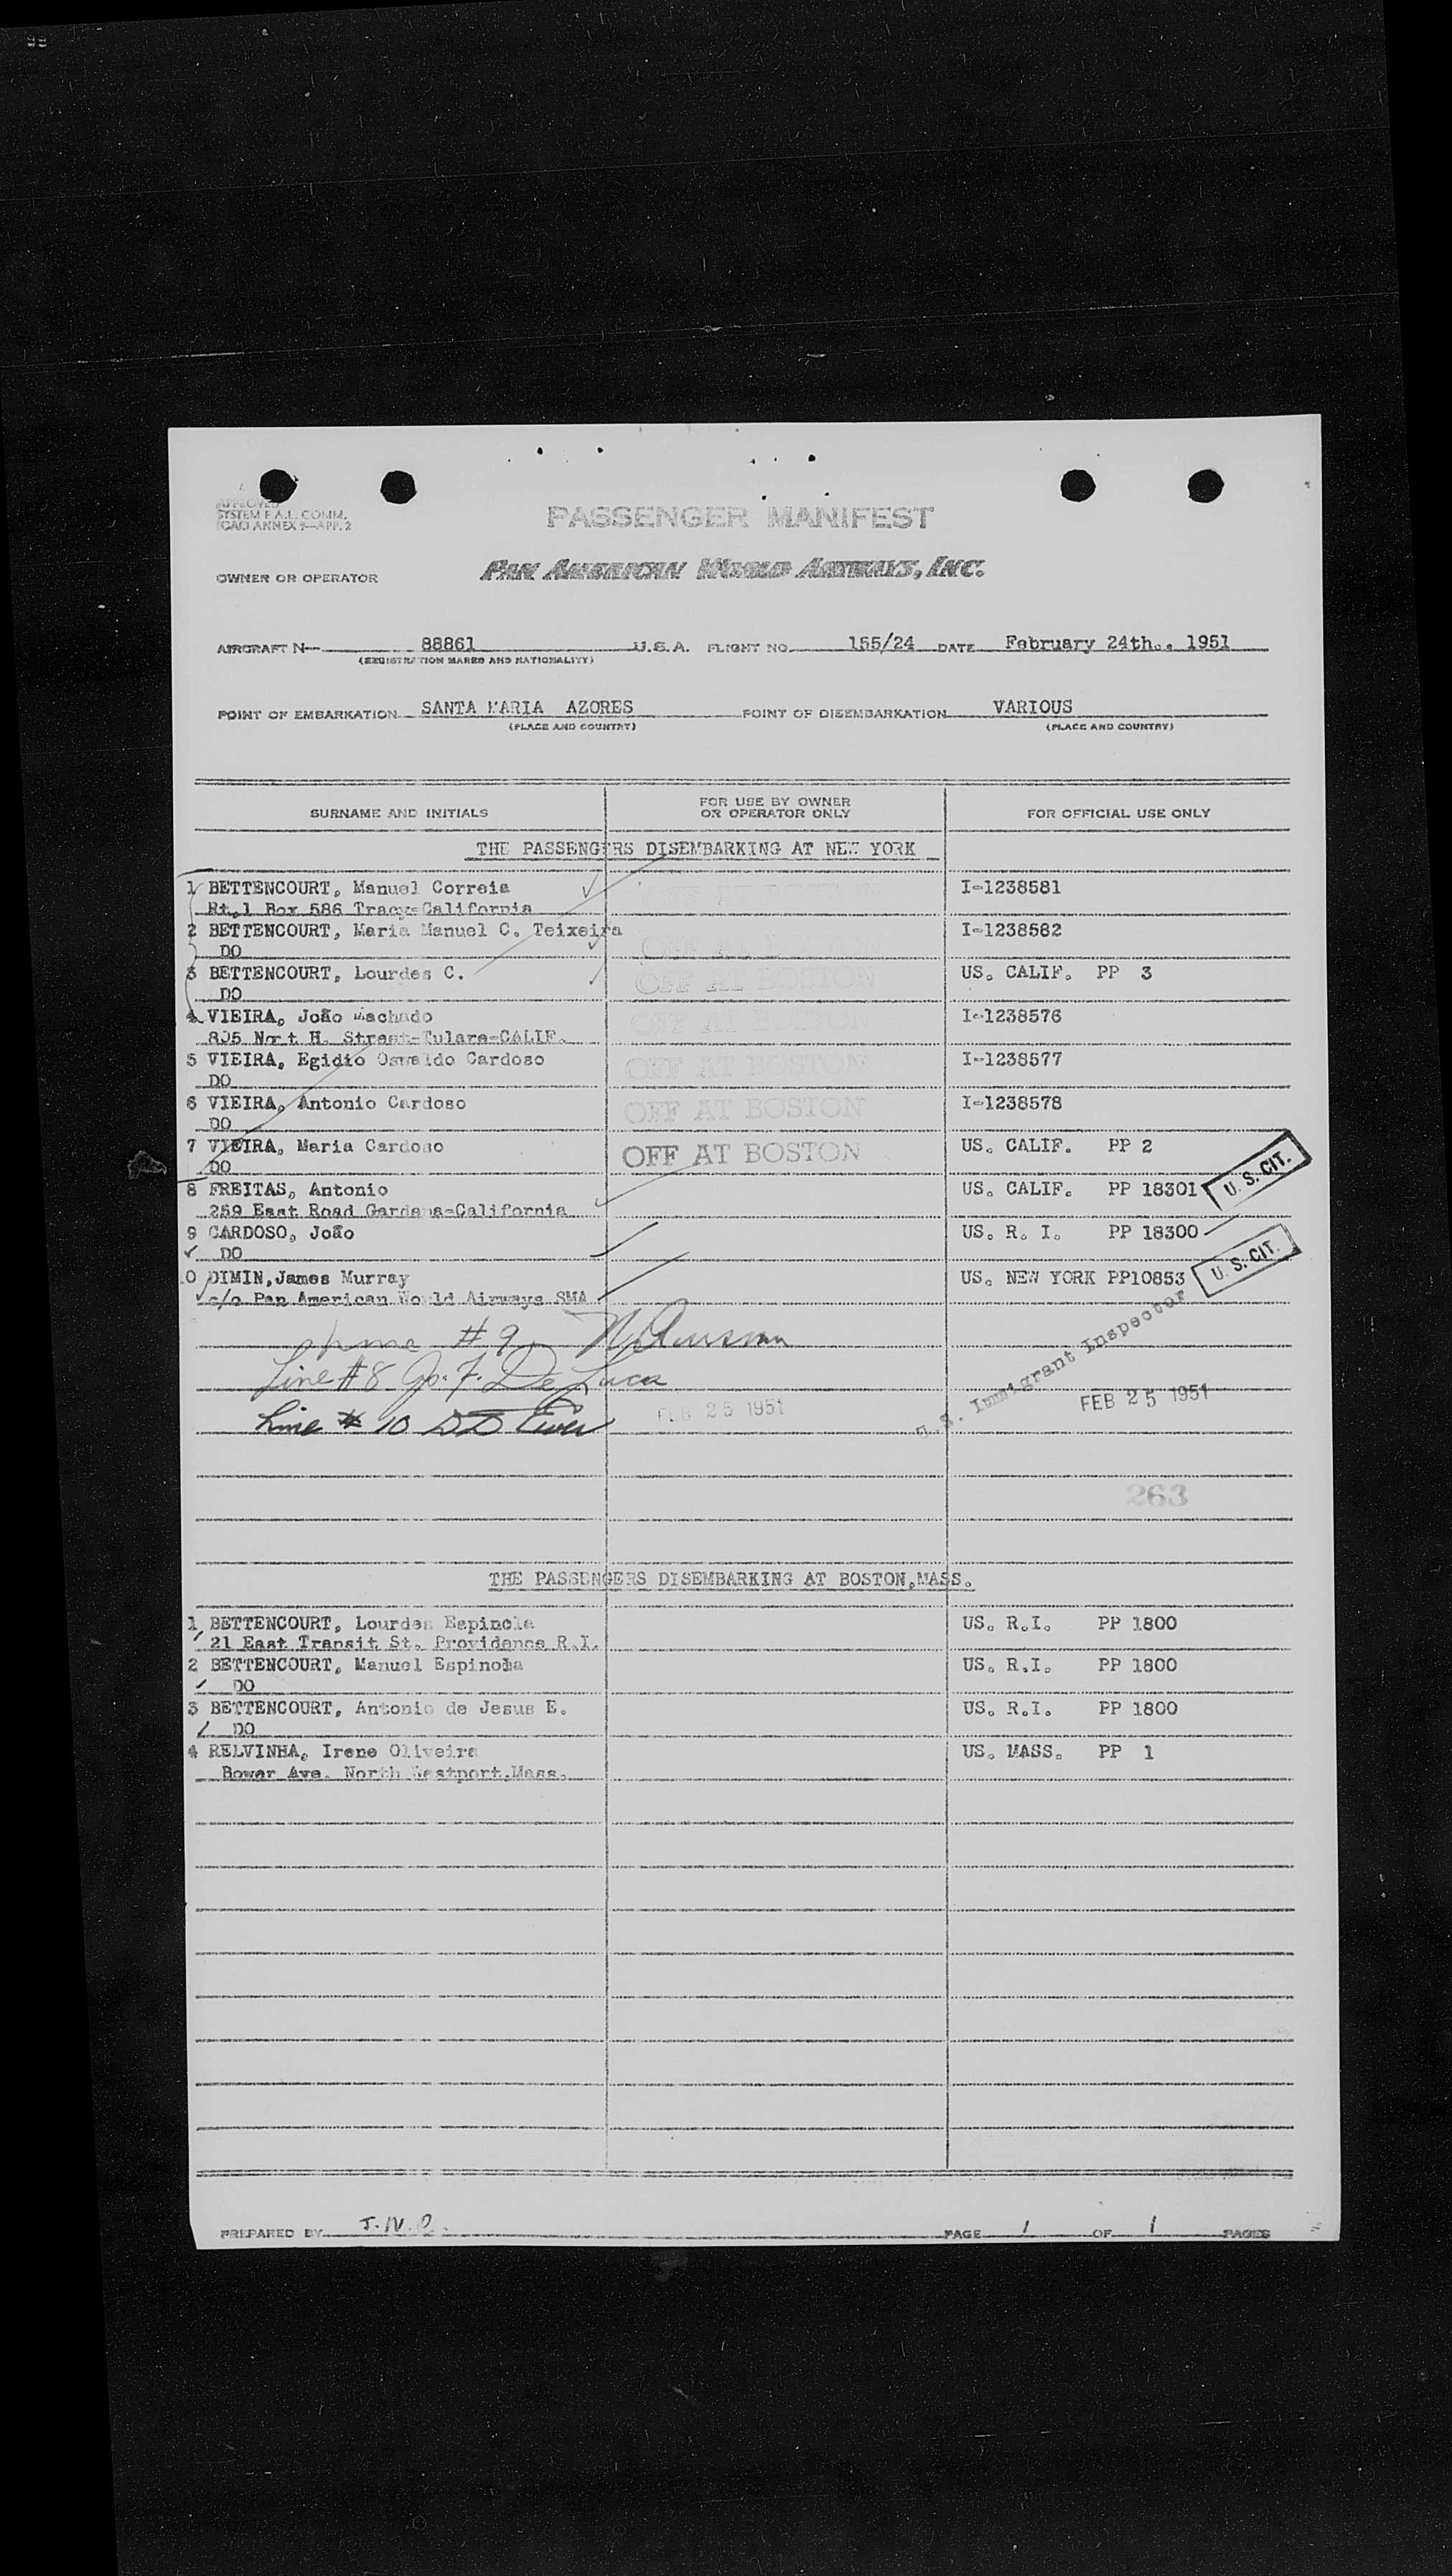 APPROVED
SYSTEM F.A.L. COMM.
ICAO ANNEX 9—APP. 2
PASSENGER MANIFEST
OWNER OR OPERATOR
PAN AMERICAN WORLD AIRWAYS, INC.
AIRCRAFT N— 88861 U.S.A. FLIGHT NO. 155/24 DATE February 24th.. 1951
(REGISTRATION MARKS AND NATIONALITY)
POINT OF EMBARKATION SANTA MARIA AZORES POINT OF DISEMBARKATION VARIOUS
(PLACE AND COUNTRY) (PLACE AND COUNTRY)
SURNAME AND INITIALS FOR USE BY OWNER OR OPERATOR ONLY FOR OFFICIAL USE ONLY
THE PASSENGERS DISEMBARKING AT NEW YORK
1 BETTENCOURT, Manuel Correia I-1238581
Rt.1 Box 586 Tracy-California
2 BETTENCOURT, Maria Manuel C. Teixeira OFF AT BOSTON I-1238582
DO
3 BETTENCOURT, Lourdes C. OFF AT BOSTON US. CALIF. PP 3
DO
4 VIEIRA, João Machado OFF AT BOSTON I-1238576
805 Nort H. Street-Tulare-CALIF.
5 VIEIRA, Egidio Oswaldo Cardoso OFF AT BOSTON I-1238577
DO
6 VIEIRA, Antonio Cardoso OFF AT BOSTON I-1238578
DO
7 VIEIRA, Maria Cardoso OFF AT BOSTON US. CALIF. PP 2
DO
8 FREITAS, Antonio US. CALIF. PP 18301 U. S. CIT.
259 East Road Gardena-California
9 CARDOSO, João US. R. I. PP 18300
DO
0 DIMIN,James Murray US. NEW YORK PP10853 U. S. CIT.
c/o Pan American World Airways SMA
# 9
Line #8 Jo. F. De Luca
Line # 10 DD
FEB 25 1951
U.S. Immigrant Inspector
FEB 25 1951
263
THE PASSENGERS DISEMBARKING AT BOSTON,MASS.
1 BETTENCOURT, Lourdes Espinola US. R.I. PP 1800
21 East Transit St. Providence R.I.
2 BETTENCOURT, Manuel Espinola US. R.I. PP 1800
DO
3 BETTENCOURT, Antonio de Jesus E. US. R.I. PP 1800
DO
4 RELVINHA, Irene Oliveira US. MASS. PP 1
Bower Ave. North Westport,Mass.
PREPARED BY J.N.O. PAGE 1 OF 1 PAGES